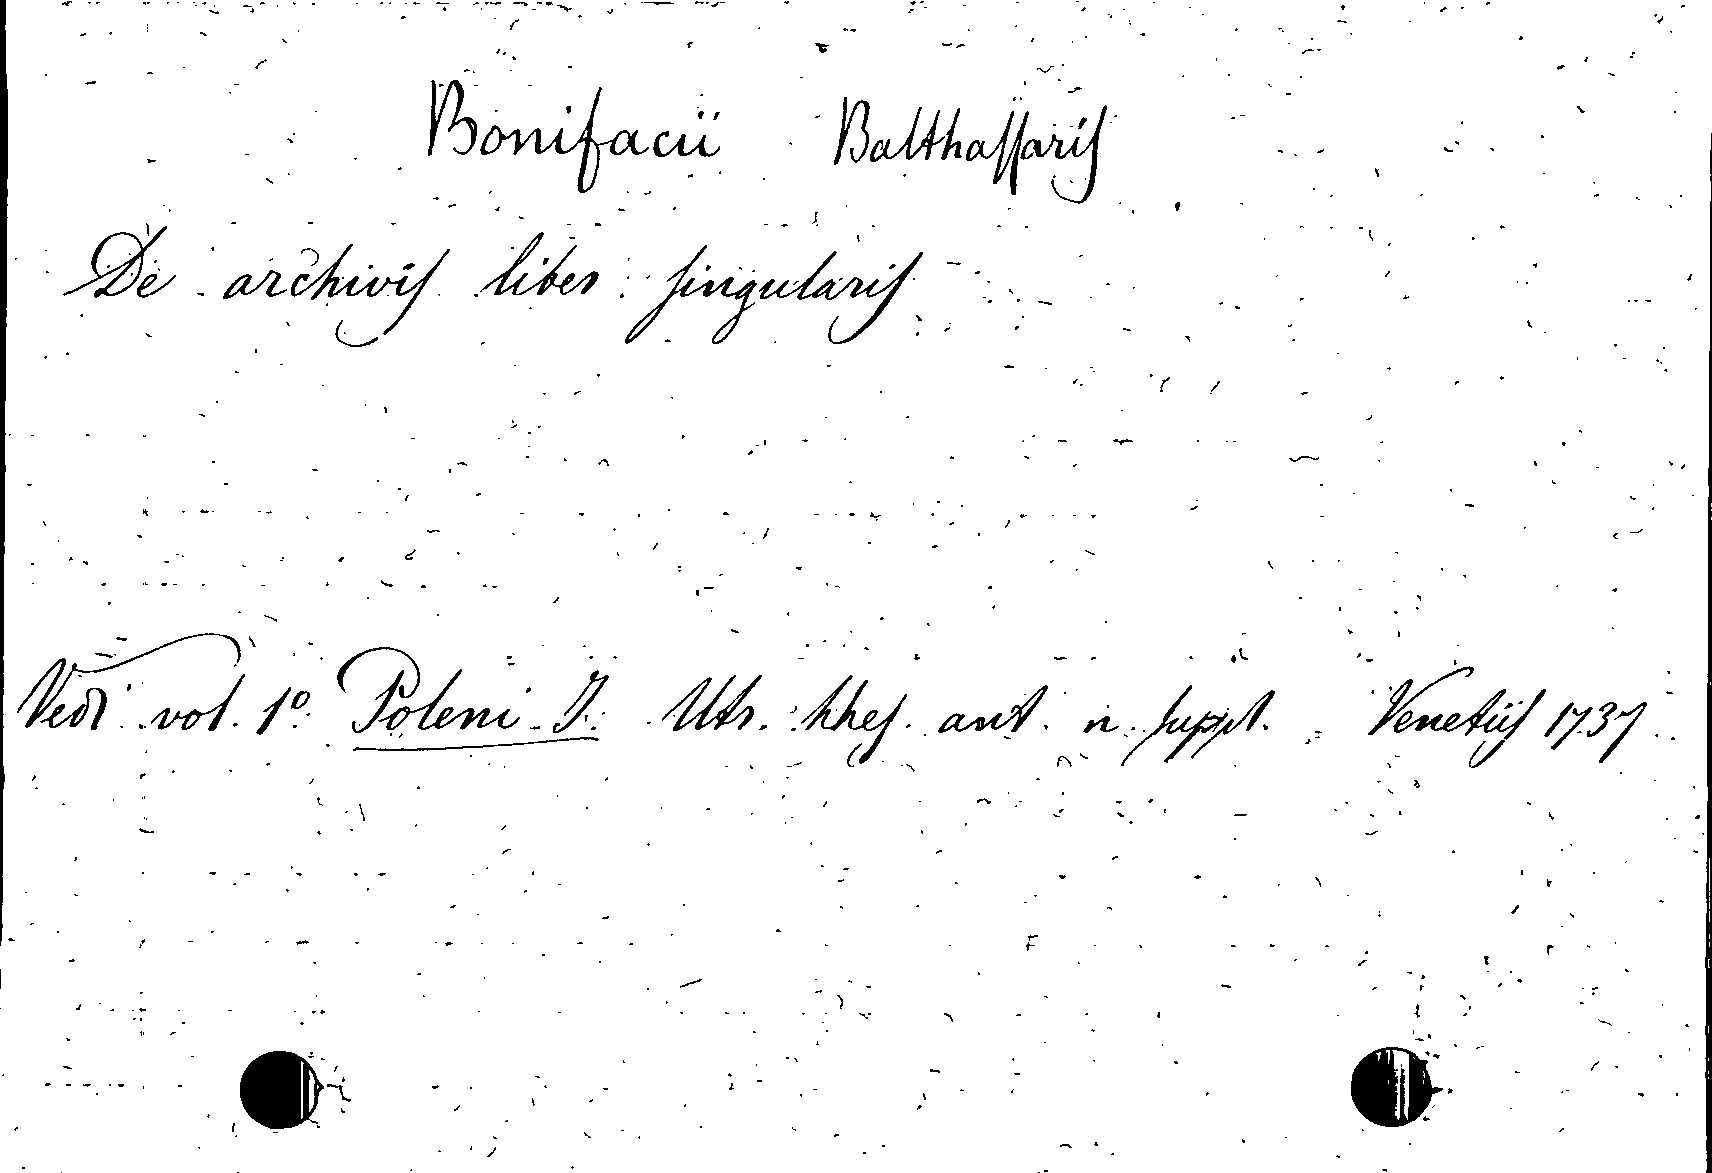 Bonifacii Balthassaris
De archivis liber singularis
Vedi vol. 1º Poleni J. Utr. thes. ant. n. suppl. Venetiis 1737